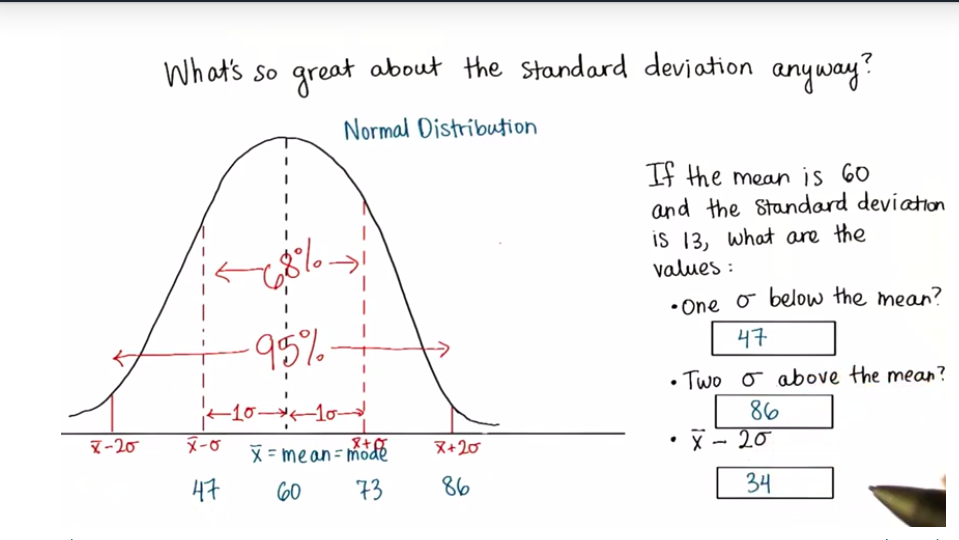 What's so great about the standard deviation anyway?
Normal Distribution
68%
95%
1σ 1σ
x̄-2σ x̄-σ x̄+σ x̄+2σ
x̄ = mean = mode
47 60 73 86
If the mean is 60
and the standard deviation
is 13, what are the
values:
• One σ below the mean?
47
• Two σ above the mean?
86
• x̄ - 2σ
34